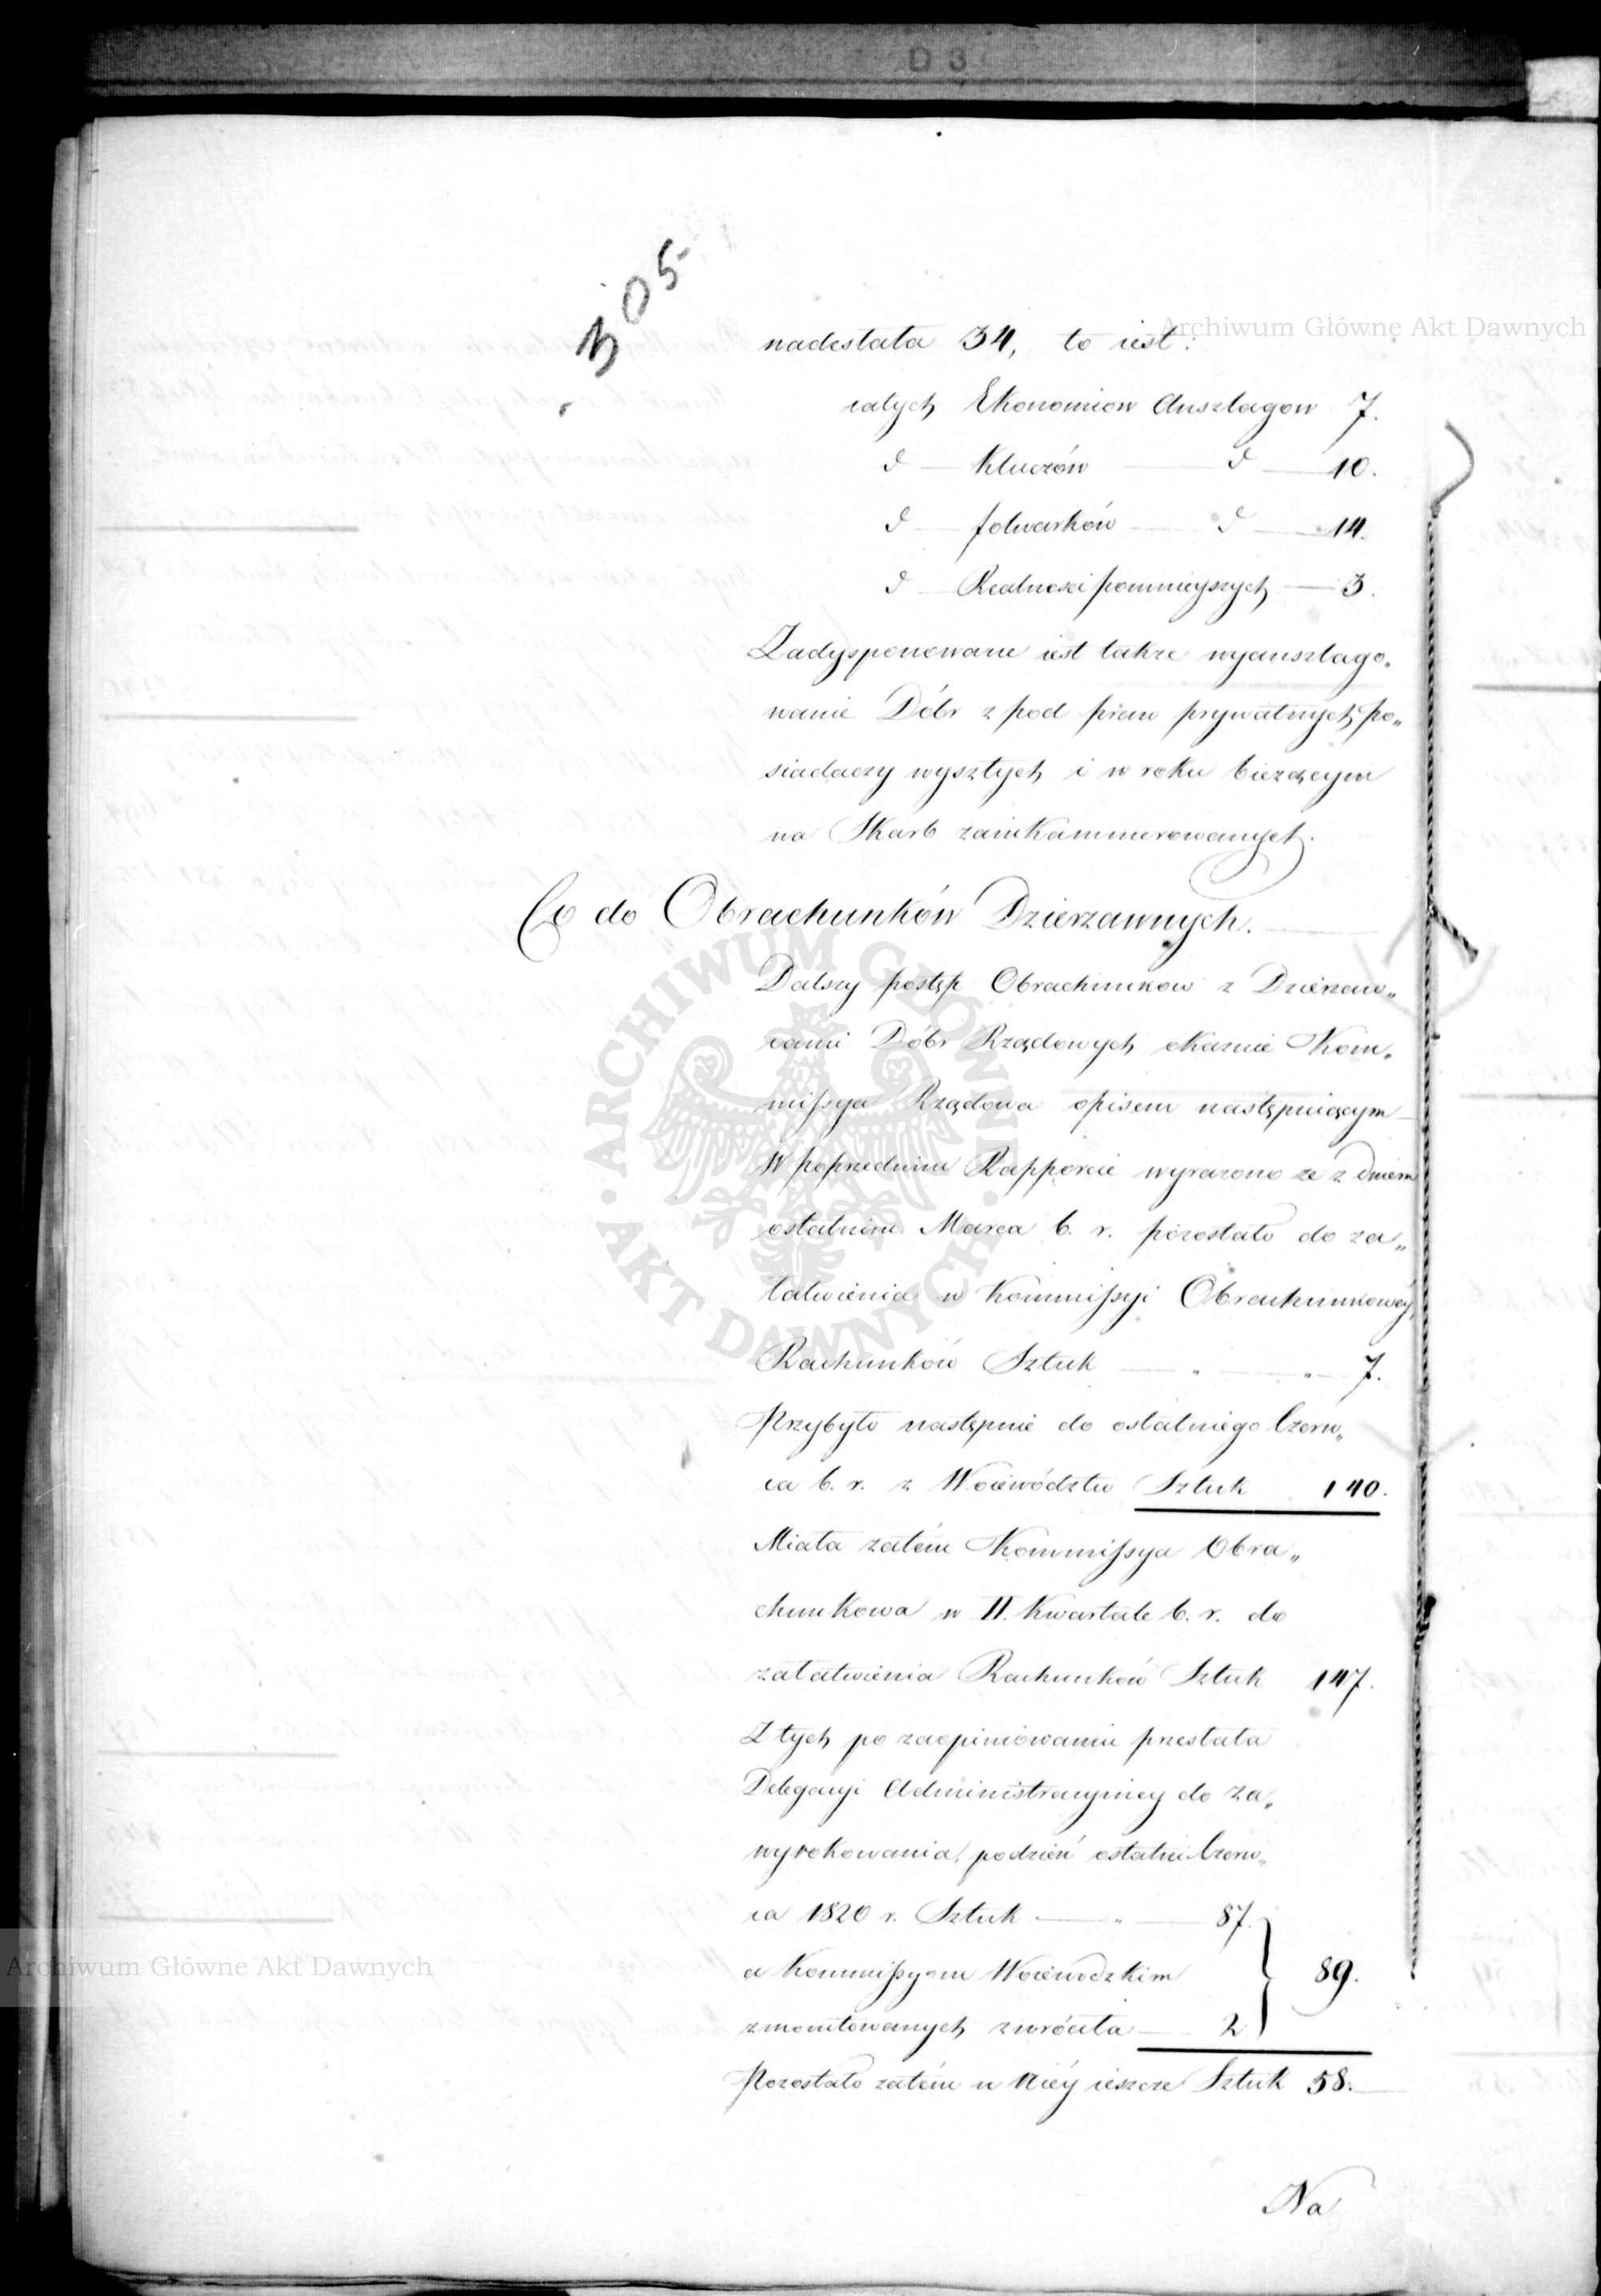 D 3
305
Archiwum Główne Akt Dawnych
nadesłała 34, to iest:
całych Ekonomiow Anszlagow 7.
d — Kluczów — d — 10.
d — folwarków — d — 14.
d — Realnosci pomnieyszych — 3.
Zadysponowane iest także wyanszlago„
wanie Dóbr z pod praw prywatnych po„
siadaczy wyszłych i w roku bieżącym
na Skarb zainkammerowanych.
Co do Obrachunków Dzierżawnych.
Dalszy postęp Obrachunkow z Dzierżaw„
cami Dóbr Rządowych okaznie Kom„
missya Rządowa opisem następuiącym
W poprzednim Rapporcie wyrażono że z dniem
ostatnim Marca b. r. pozostało do za„
łatwienia w Kommissyi Obrachunkowey,
Rachunków Sztuk — „ — „ — 7.
Przybyło następnie do ostatniego Czerw„
ca b. r. z Woiewództw Sztuk 140.
Miała zatém Kommissya Obra„
chunkowa w II. Kwartale b. r. do
załatwienia Rachunków Sztuk 147.
Z tych po zaopiniowaniu przesłała
Delegacyi Administracyiney do za„
wyrokowania, po dzień ostatni Czerw„
ca 1820 r. Sztuk — „ — 87.
a Kommissyom Woiewodzkim 89.
zmonitowanych zwróciła — 2
Pozostało zatém w Niéy ieszcze Sztuk 58.
Na
ARCHIWUM GŁÓWNE AKT DAWNYCH
Archiwum Główne Akt Dawnych